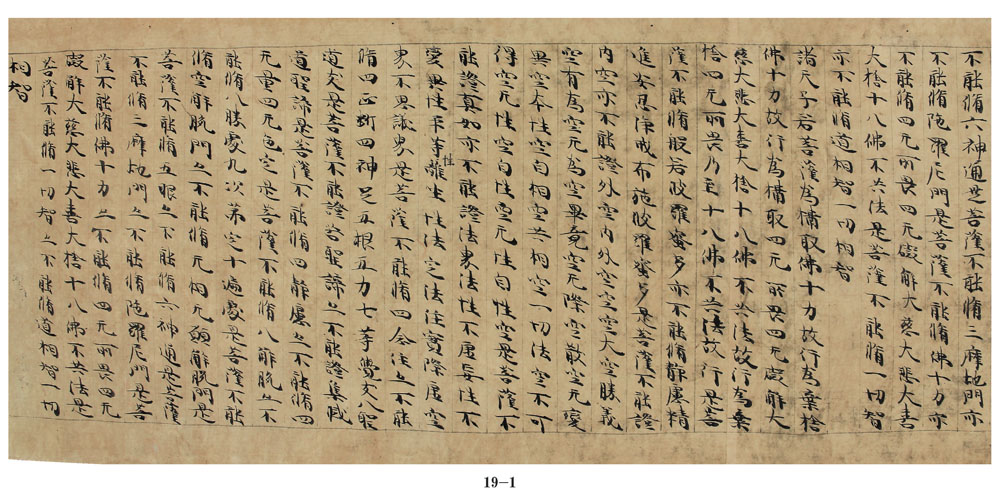 不能脩六神通是菩薩不能脩三摩地門亦
不能脩陀羅尼門是菩薩不能脩佛十力亦
不能脩四无所畏四无礙解大慈大悲大喜
大捨十八佛不共法是菩薩不能脩一切智
亦不能脩道相智一切相智
諸天子若菩薩為攝取佛十力故行為棄捨
佛十力故行為攝取四无所畏四无礙解大
慈大悲大喜大捨十八佛不共法故行為棄
捨四无所畏乃至十八佛不共法故行是菩
薩不能脩般若波羅蜜多亦不能脩靜慮精
進安忍淨戒布施波羅蜜多是菩薩不能證
內空亦不能證外空內外空空空大空勝義
空有為空无為空畢竟空无際空散空无變
異空本性空自相空共相空一切法空不可
得空无性空自性空无性自性空是菩薩不
能證真如亦不能證法界法性不虛妄性不
變異性平等性離生性法定法住實際虛空
界不思議界是菩薩不能脩四念住亦不能
脩四正斷四神足五根五力七等覺支八聖
道支是菩薩不能證苦聖諦亦不能證集滅
道聖諦是菩薩不能脩四靜慮亦不能脩四
无量四无色定是菩薩不能脩八解脫亦不
能脩八勝處九次第定十遍處是菩薩不能
脩空解脫門亦不能脩无相无願解脫門是
菩薩不能脩五眼亦不能脩六神通是菩薩
不能脩三摩地門亦不能脩陀羅尼門是菩
薩不能脩佛十力亦不能脩四无所畏四无
礙解大慈大悲大喜大捨十八佛不共法是
菩薩不能脩一切智亦不能脩道相智一切
相智
19-1